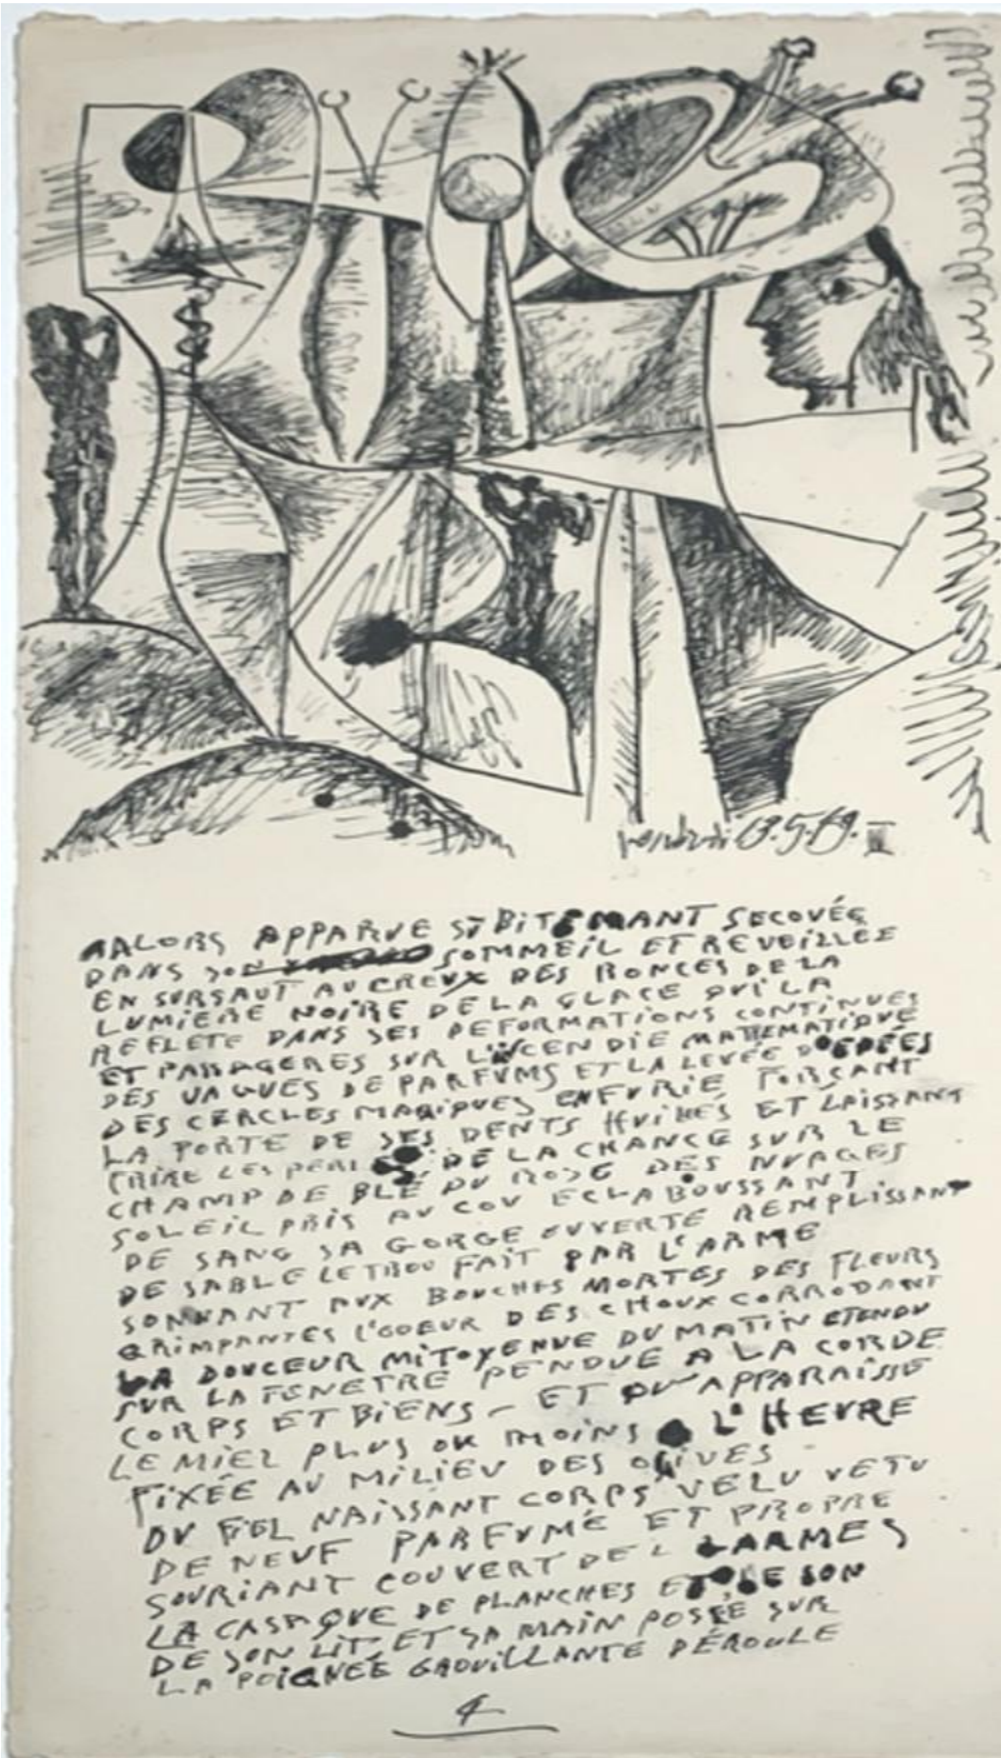 13.5.69. III
ALORS APPARUE SUBITEMANT SECOUÉE
DANS SON SOMMEIL ET REVEILLEE
EN SURSAUT AU CREUX DES RONCES DE LA
LUMIERE NOIRE DE LA GLACE QUI LA
REFLETE DANS SES DEFORMATIONS CONTINUES
ET PASSAGERES SUR L'INCENDIE MATHEMATIQUE
DES VAGUES DE PARFUMS ET LA LEVÉE D'EPÉES
DES CERCLES MAGIQUES EN FURIE FORÇANT
LA PORTE DE SES DENTS ET LAISSANT
FRIRE LES DE LA CHANCE SUR LE
CHAMP DE BLÉ DU ROSE DES NUAGES
SOLEIL PRIS AU COU ECLABOUSSANT
DE SANG SA GORGE OUVERTE REMPLISSANT
DE SABLE LE TROU FAIT PAR L'ARME
SONNANT AUX BOUCHES MORTES DES FLEURS
GRIMPANTES L'COEUR DES CHOUX CORRODANT
LA DOUCEUR MITOYENNE DU MATIN ETENDU
SUR LA FENETRE PENDUE A LA CORDE
CORPS ET BIENS - ET QU'APPARAISSE
LE MIEL PLUS OU MOINS L'HEURE
FIXÉE AU MILIEU DES OLIVES
DU FIEL NAISSANT CORPS VELU VETU
DE NEUF PARFUMÉ ET PROPRE
SOURIANT COUVERT DE LARMES
LA CASAQUE DE PLANCHES ET DE SON
DE SON LIT ET SA MAIN POSÉE SUR
LA POIGNÉE GROUILLANTE DÉROULE